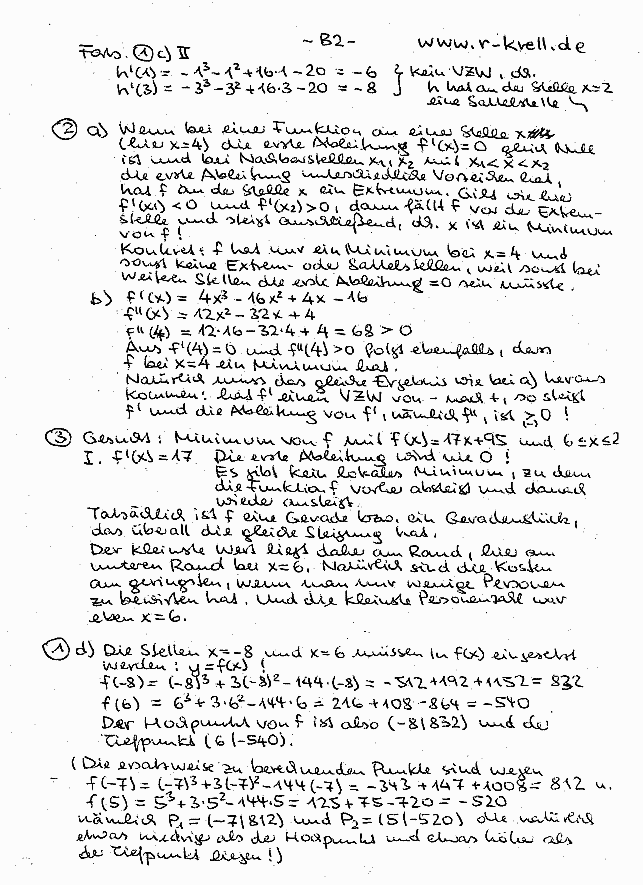 - B2 -    www.r-krell.de
Forts. ① c) II
h'(1) = -1³-1²+16·1-20 = -6 } kein VZW, d.h.
h'(3) = -3³-3²+16·3-20 = -8 } h hat an der Stelle x=2
eine Sattelstelle
② a) Wenn bei einer Funktion an einer Stelle x
(hier x=4) die erste Ableitung f'(x)=0 gleich Null
ist und bei Nachbarstellen x₁, x₂ mit x₁<x<x₂
die erste Ableitung unterschiedliche Vorzeichen hat,
hat f an der Stelle x ein Extremum. Gilt wie hier
f'(x₁)<0 und f'(x₂)>0, dann fällt f vor der Extrem-
stelle und steigt anschließend, d.h. x ist ein Minimum
von f!
Konkret: f hat nur ein Minimum bei x=4 und
sonst keine Extrem- oder Sattelstellen, weil sonst bei
weiteren Stellen die erste Ableitung =0 sein müsste.
b) f'(x) = 4x³-16x²+4x-16
f''(x) = 12x²-32x+4
f''(4) = 12·16-32·4+4 = 68 > 0
Aus f'(4)=0 und f''(4)>0 folgt ebenfalls, dass
f bei x=4 ein Minimum hat.
Natürlich muss das gleiche Ergebnis wie bei a) heraus
kommen: hat f' einen VZW von - nach +, so steigt
f' und die Ableitung von f', nämlich f'', ist ≥ 0 !
③ Gesucht: Minimum von f mit f(x)=17x+95 und 6≤x≤2
I. f'(x)=17 Die erste Ableitung wird nie 0 !
Es gibt kein lokales Minimum, zu dem
die Funktion f vorher absteigt und danach
wieder ansteigt.
Tatsächlich ist f eine Gerade bzw. ein Geradenstück,
das überall die gleiche Steigung hat.
Der kleinste Wert liegt daher am Rand, hier am
unteren Rand bei x=6. Natürlich sind die Kosten
am geringsten, wenn man nur wenige Personen
zu bewirten hat. Und die kleinste Personenzahl war
eben x=6.
① d) Die Stellen x=-8 und x=6 müssen in f(x) eingesetzt
werden: y=f(x) !
f(-8) = (-8)³+3(-8)²-144·(-8) = -512+192+1152 = 832
f(6) = 6³+3·6²-144·6 = 216+108-864 = -540
Der Hochpunkt von f ist also (-8|832) und der
Tiefpunkt (6|-540).
(Die ersatzweise zu berechnenden Punkte sind wegen
f(-7) = (-7)³+3(-7)²-144(-7) = -343+147+1008 = 812 u.
f(5) = 5³+3·5²-144·5 = 125+75-720 = -520
nämlich P₁=(-7|812) und P₂=(5|-520) die natürlich
etwas niedriger als der Hochpunkt und etwas höher als
der Tiefpunkt liegen!)